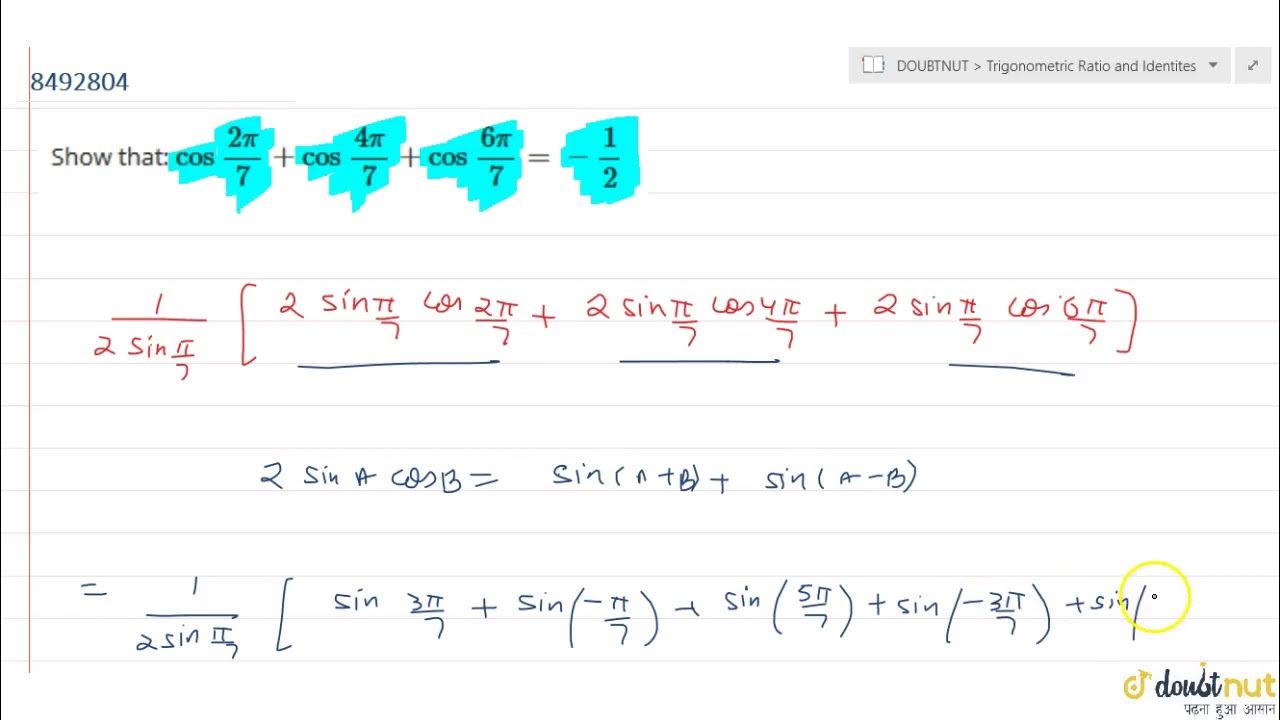 8492804
DOUBTNUT > Trigonometric Ratio and Identites
Show that: cos 2π/7 + cos 4π/7 + cos 6π/7 = − 1/2
1/(2 sin π/7) [ 2 sin π/7 cos 2π/7 + 2 sin π/7 cos 4π/7 + 2 sin π/7 cos 6π/7 ]
2 sin A cos B = sin(A+B) + sin(A−B)
= 1/(2 sin π/7) [ sin 3π/7 + sin(−π/7) + sin(5π/7) + sin(−3π/7) + sin(
doubtnut
पढ़ना हुआ आसान